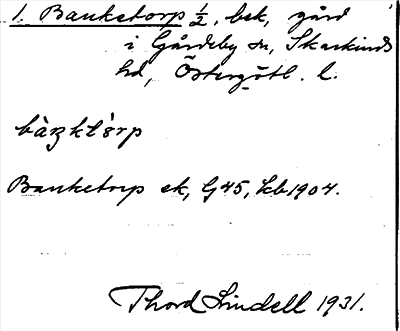 1. Banketorp ½, bek, gård
i Gårdeby sn, Skärkinds
hd, Östergötl. l.
bàŋktʼårp
Banketorp ek, G45, kb 1904.
Thord Lindell 1931.